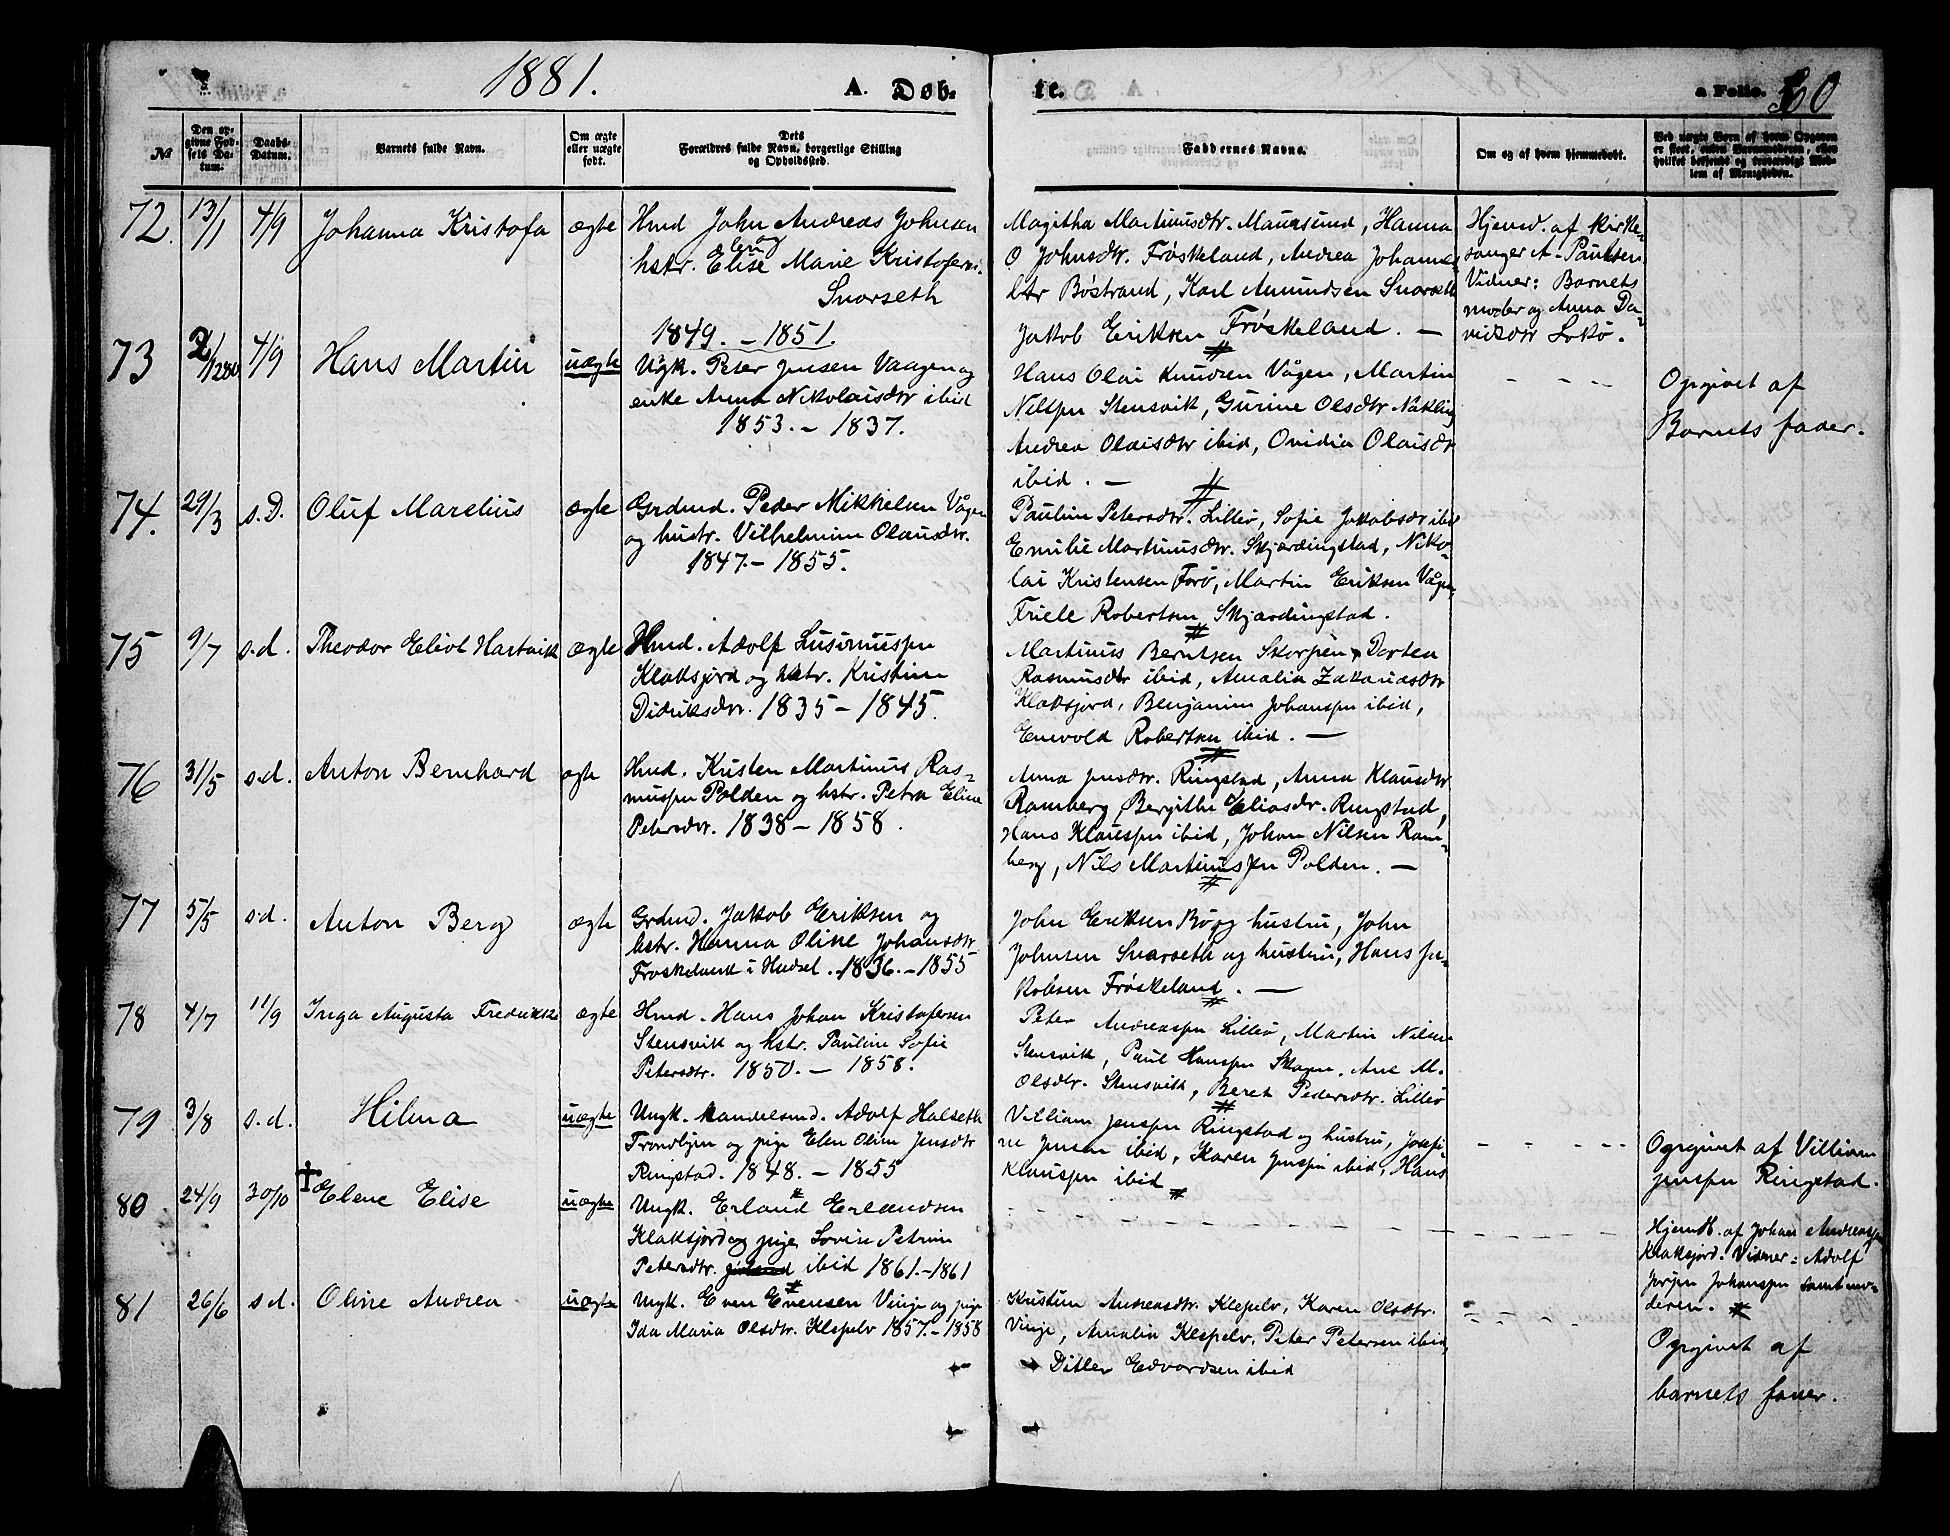 1881.
A. Døb-
te.
a Folio. 60
№
Den op-
givne Fød-
sels Da-
tum.
Daabs-
Datum.
Barnets fulde Navn.
Om ægte
eller uægte
født.
Dets
Forældres fulde Navn, borgerlige Stilling
og Opholdssted.
Faddernes Navne.
Om og af hvem hjemmedøbt.
Ved uægte Børn af hvem Opgaven
er skeet, enten Barnemoderen, eller
hvilket bekjendt og troværdigt Med-
lem af Menigheden.
72. 13/1 4/9 Johanna Kristofa ægte
Hmd John Andreas Johnsen
og
hstr. Elise Marie Kristofers-
Snarseth
1849. - 1851.
Magitha Martinusdtr. Maursund, Hanna
O Johnsdtr. Frøskeland, Andrea Johannes
dtr Bøstrand, Karl Amundsen Snarseth
Jakob Eriksen Frøskeland. —
Hjemd. af Kirke-
sanger A. Paulsen
Vidner: Barnets
moder og Anna Da-
vidsdtr Sokø.
73 4/9 Hans Martin uægte
Ugk. Peter Jensen Vaagen og
enke Anna Nikolaisdtr ibid
1853. - 1837.
Hans Olai Knudsen Vågen, Martin
Nilspn Stensvik, Gurine Olsdtr Nakling
Andrea Olaisdtr ibid, Ovidia Olaisdtr
ibid. —
Opgivet af
Barnets fader.
74. 29/3 s.D. Oluf Marelius ægte
Grdmd. Peder Mikkelsen Vågen
og hustr. Vilhelmine Olausdtr.
1847. - 1855.
Pauline Petersdtr. Lillø, Sofie Jakobsdtr ibid
Emilie Martinusdtr. Skjærdingstad, Niko-
lai Kristensen Forø, Martin Eriksen Vågen,
Friele Robertsen Skjærdingstad.
75 9/7 s.d. Theodor Eliot Hartvik ægte
Hmd. Adolf
Klaksjord og hstr. Kristine
Didriksdtr. 1835 - 1845.
Martinus Berntsen Skorpen, Dortea
Rasmusdtr ibid, Amalia Zakariasdtr
Klaksjord, Benjamin Johanspn ibid,
Enevold Robertsen ibid. —
76 31/5 s.d. Anton Bernhard ægte
Hmd. Kristen Martinus Ras-
muspn Polden og hstr. Petra Eline
Petersdtr. 1838 - 1858.
Anna Jensdtr. Ringstad, Anna Klausdtr
Ramberg, Bergithe Eliasdtr. Ringstad,
Hans Klauspn ibid, Johan Nilsen Ram-
berg, Nils Martinuspn Polden. —
77 5/5 s.d. Anton Berg ægte
Grdmd. Jakob Eriksen og
hstr. Hanna Oline Johansdtr
Frøskeland i Hadsel. 1836. - 1855
John Eriksen Bø og hustru, John
Johnsen Snarseth og hustru, Hans Ja-
kobsen Frøskeland. —
78 4/7 11/9 Inga Augusta Fredrikke ægte
Hmd. Hans Johan Kristofersen
Stensvik og hstr. Pauline Sofie
Petersdtr. 1850. - 1858.
Peter Andreaspn Lillø, Martin Nilsen
Stensvik, Paul Hanspn Skagen, Ane M.
Olsdtr. Stensvik, Beret Pedersdtr. Lillø
79 3/8 s.d. Hilma uægte
Ungk. handelsmd. Adolf Halseth
Trondhjem og pige Elen Oline Jensdtr
Ringstad. 1848. - 1855
Villiam Jenspn Ringstad og hustru, Josefi-
ne Jensen ibid, Karen Jenspn ibid, Hans
Klauspn ibid
Opgivet af Villiam
Jenspn Ringstad.
80 24/9 30/10 Elene Elise uægte
Ungk. Erland Erlandsen
Klaksjord og pige Lovise Petrine
Petersdtr. ibid 1861. - 1861
Hjemdt. af Johan Andreaspn
Klaksjord. Vidner: Adolf
Jørgen Johanspn samt mo-
deren.
81 26/6 s.d. Oline Andrea uægte
Ungk. Even Evensen Vinje og pige
Ida Maria Olsdtr. Klepelv 1857. - 1858
Kristine Andreasdtr. Klepelv, Karen Olsdtr.
Vinje, Amalia Klepelv, Peter Petersen ibid,
Ditlev Edvardsen ibid
Opgivet af
barnets fader.